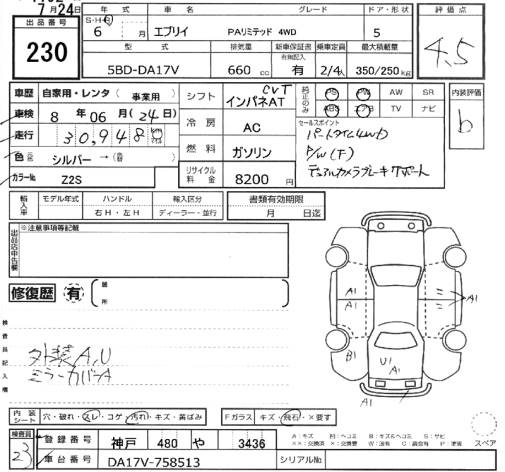 7月24日
出品番号
230
年式
車名
グレード
ドア・形状
評価点
S・H・R
6 月
エブリイ
PAリミテッド 4WD
5
4.5
型式
排気量
新車保証書
有無記入
乗車定員
最大積載量
5BD-DA17V
660 cc
有
2/4人
350/250kg
車歴
自家用・レンタ（事業用）
シフト
CVT
インパネAT
純正のみ
PS PW AW SR
ABS エアB TV ナビ
内装評価
b
車検
8 年 06 月（24日）
冷房
AC
セールスポイント
パートタイム4WD
P/W(F)
デュアルカメラブレーキサポート
走行
30,948
燃料
ガソリン
色
シルバー →
カラーNo
Z2S
リサイクル料金
8200 円
輸入車
モデル年式
ハンドル
輸入区分
右H・左H
ディーラー・並行
書類有効期限
月 日迄
出品店申告欄
※注意事項等記載
修復歴
有
箇所
検査員記入欄
外装A,U
ミラーカバーA
A1
A1
A1
B1
U1
A1
A1
内装シート
穴・破れ・スレ・コゲ・汚れ・キズ・黄ばみ
Fガラス
キズ・飛石・×要す
スペア
検査員
23
登録番号
神戸 480 や 3436
車台番号
DA17V-758513
シリアルNo